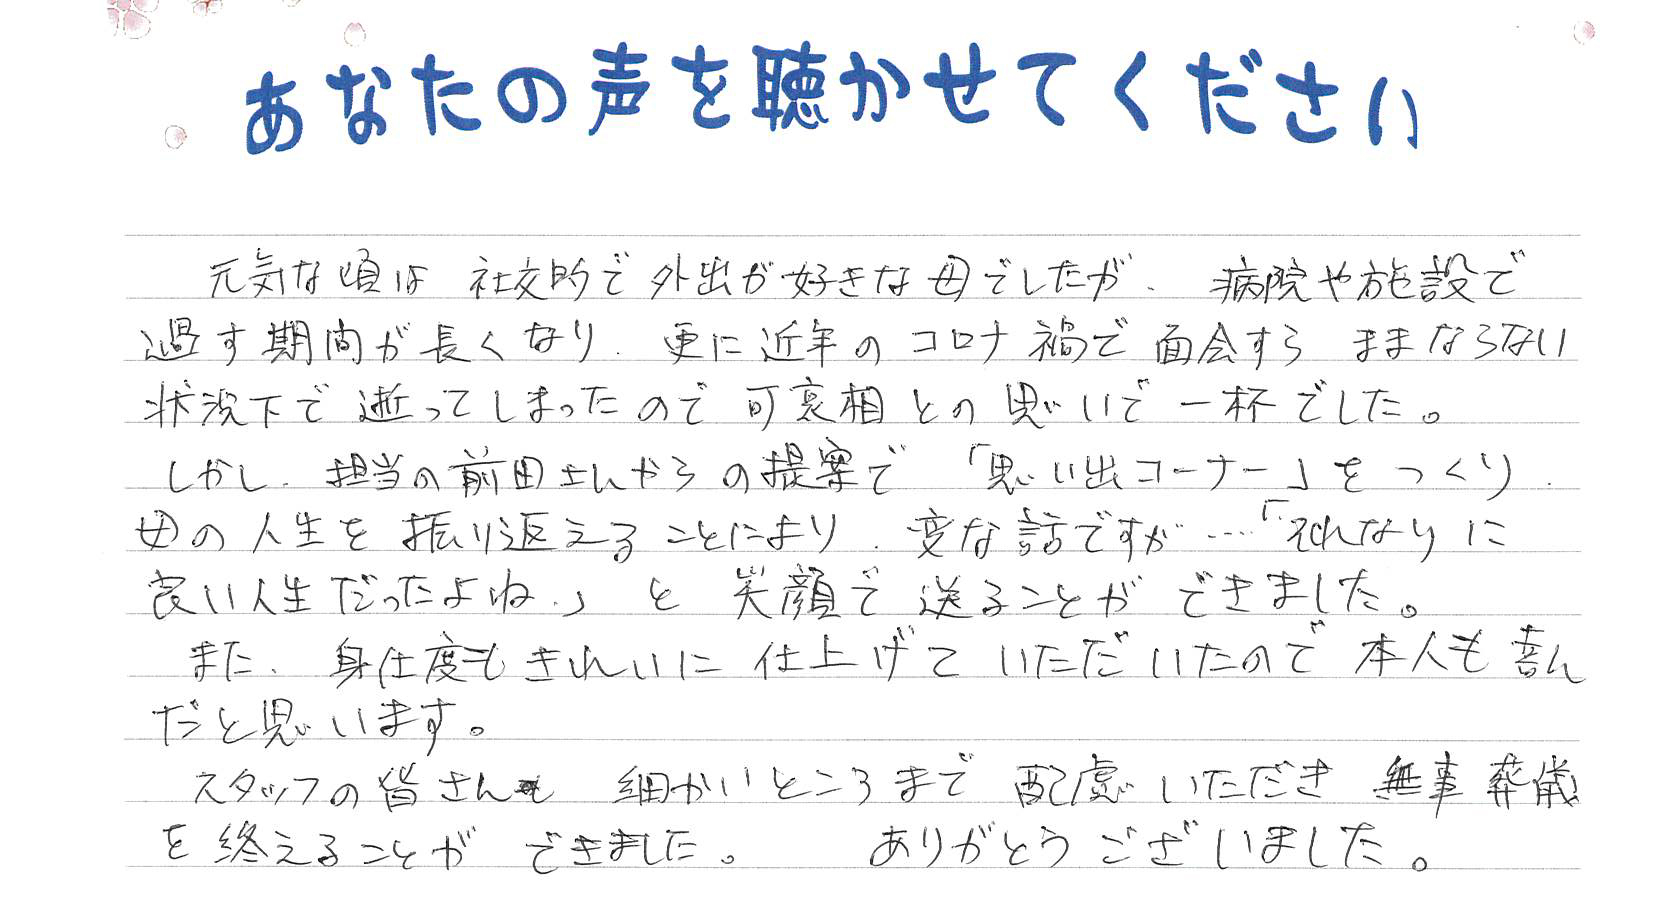 あなたの声を聴かせてください
元気な頃は 社交的で外出が好きな母でしたが、病院や施設で
過す期間が長くなり、更に近年のコロナ禍で面会すら ままならない
状況下で逝ってしまったので可哀相との思いで一杯でした。
しかし、担当の前田さんからの提案で「思い出コーナー」をつくり、
母の人生を振り返えることにより、変な話ですが……「それなりに
良い人生だったよね。」と笑顔で送ることができました。
また、身仕度もきれいに仕上げていただいたので本人も喜ん
だと思います。
スタッフの皆さんも 細かいところまで配慮いただき 無事葬儀
を終えることが できました。 ありがとうございました。